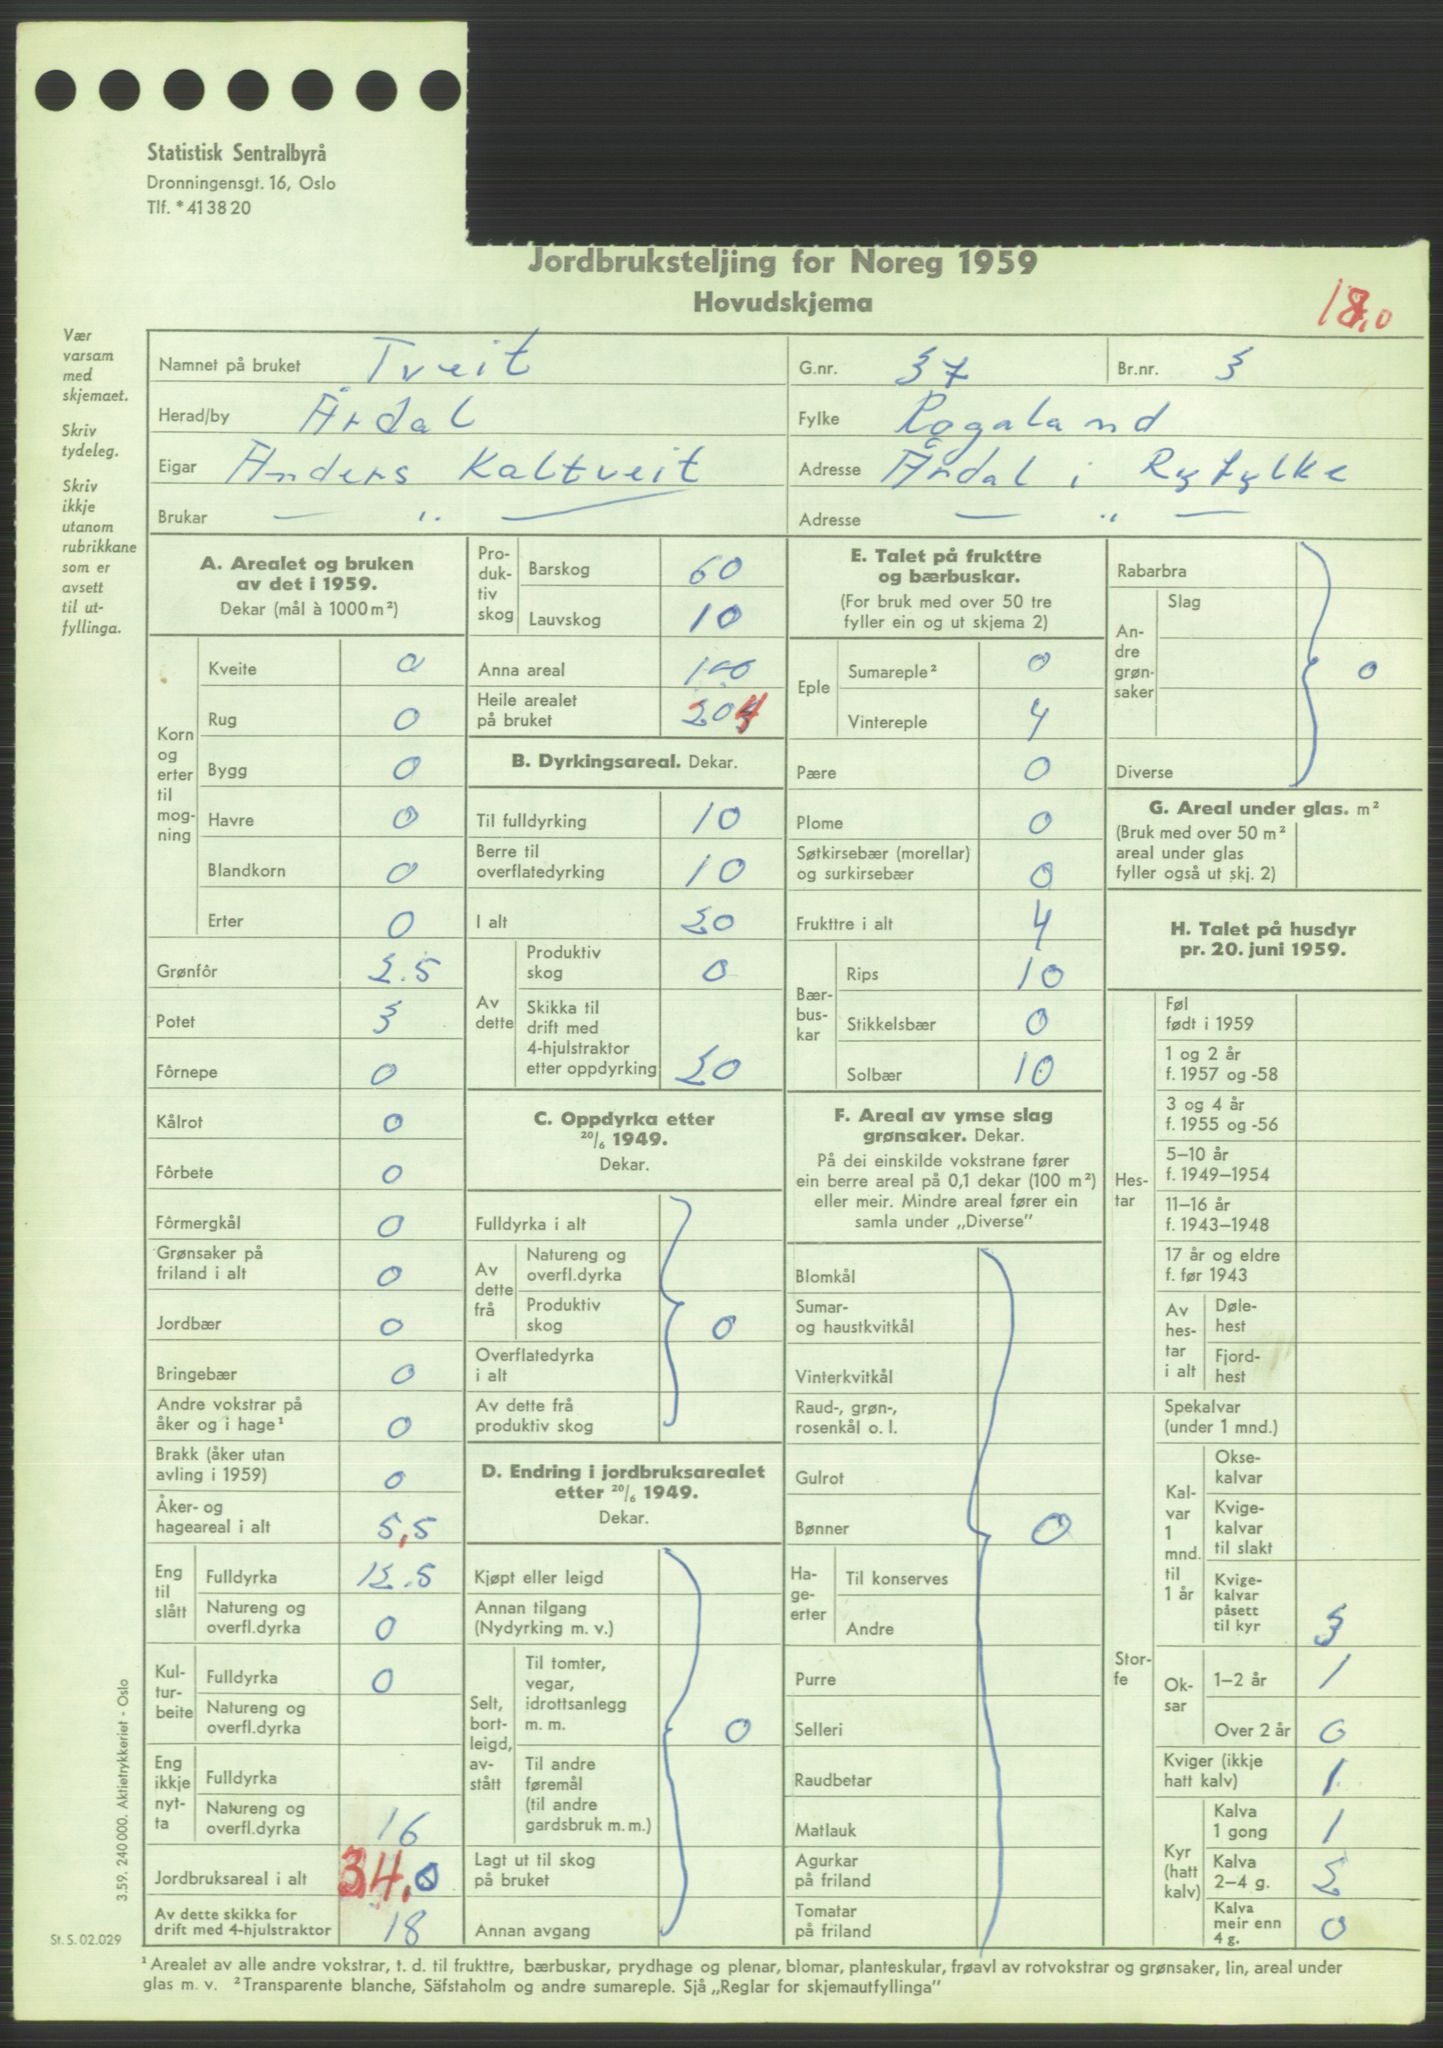 Statistisk Sentralbyrå
Dronningensgt. 16, Oslo
Tlf. *41 38 20
Jordbruksteljing for Noreg 1959
Hovudskjema
18,0
Vær
varsam
med
skjemaet.
Skriv
tydeleg.
Skriv
ikkje
utanom
rubrikkane
som er
avsett
til ut-
fyllinga.
Namnet på bruket Tveit G.nr. 37 Br.nr. 3
Herad/by Årdal Fylke Rogaland
Eigar Anders Kaltveit Adresse Årdal i Ryfylke
Brukar — „ — Adresse — „ —
A. Arealet og bruken
av det i 1959.
Dekar (mål à 1000 m²)
Korn og erter til mog-ning
Kveite 0
Rug 0
Bygg 0
Havre 0
Blandkorn 0
Erter 0
Grønfôr 2.5
Potet 3
Fôrnepe 0
Kålrot 0
Fôrbete 0
Fôrmergkål 0
Grønsaker på
friland i alt 0
Jordbær 0
Bringebær 0
Andre vokstrar på
åker og i hage¹ 0
Brakk (åker utan
avling i 1959) 0
Åker- og
hageareal i alt 5,5
Eng til slått
Fulldyrka 12.5
Natureng og
overfl.dyrka 0
Kul-tur-beite
Fulldyrka 0
Natureng og
overfl.dyrka
Eng ikkje nyt-ta
Fulldyrka
Natureng og
overfl.dyrka 16
Jordbruksareal i alt 34.0
Av dette skikka for
drift med 4-hjulstraktor 18
Pro-duk-tiv skog
Barskog 60
Lauvskog 10
Anna areal 100
Heile arealet
på bruket 204
B. Dyrkingsareal. Dekar.
Til fulldyrking 10
Berre til
overflatedyrking 10
I alt 20
Av dette
Produktiv
skog 0
Skikka til
drift med
4-hjulstraktor
etter oppdyrking 20
C. Oppdyrka etter
20/6 1949.
Dekar.
Fulldyrka i alt
Av dette frå
Natureng og
overfl.dyrka
Produktiv
skog 0
Overflatedyrka
i alt
Av dette frå
produktiv skog
D. Endring i jordbruksarealet
etter 20/6 1949.
Dekar.
Kjøpt eller leigd
Annan tilgang
(Nydyrking m. v.)
Selt, bort-leigd, av-stått
Til tomter,
vegar,
idrottsanlegg
m. m. 0
Til andre
føremål
(til andre
gardsbruk m. m.)
Lagt ut til skog
på bruket
Annan avgang
E. Talet på frukttre
og bærbuskar.
(For bruk med over 50 tre
fyller ein og ut skjema 2)
Eple
Sumareple² 0
Vintereple 4
Pære 0
Plome 0
Søtkirsebær (morellar)
og surkirsebær 0
Frukttre i alt 4
Bær-bus-kar
Rips 10
Stikkelsbær 0
Solbær 10
F. Areal av ymse slag
grønsaker. Dekar.
På dei einskilde vokstrane fører
ein berre areal på 0,1 dekar (100 m²)
eller meir. Mindre areal fører ein
samla under „Diverse”
Blomkål
Sumar-
og haustkvitkål
Vinterkvitkål
Raud-, grøn-,
rosenkål o. l.
Gulrot
Bønner 0
Ha-ge-erter
Til konserves
Andre
Purre
Selleri
Raudbetar
Matlauk
Agurkar
på friland
Tomatar
på friland
Rabarbra
An-dre grøn-saker
Slag
0
Diverse
G. Areal under glas. m²
(Bruk med over 50 m²
areal under glas
fyller også ut skj. 2)
H. Talet på husdyr
pr. 20. juni 1959.
Hes-tar
Føl
født i 1959
1 og 2 år
f. 1957 og -58
3 og 4 år
f. 1955 og -56
5–10 år
f. 1949–1954
11–16 år
f. 1943–1948
17 år og eldre
f. før 1943
Av hes-tar i alt
Døle-
hest
Fjord-
hest
Stor-fe
Spekalvar
(under 1 mnd.)
Kal-var 1 mnd. til 1 år
Okse-
kalvar
Kvige-
kalvar
til slakt
Kvige-
kalvar
påsett
til kyr 3
Ok-sar
1–2 år 1
Over 2 år 0
Kviger (ikkje
hatt kalv) 1
Kyr (hatt kalv)
Kalva
1 gong 1
Kalva
2–4 g. 2
Kalva
meir enn
4 g. 0
3.59. 240 000. Aktietrykkeriet - Oslo
St. S. 02.029
¹ Arealet av alle andre vokstrar, t. d. til frukttre, bærbuskar, prydhage og plenar, blomar, planteskular, frøavl av rotvokstrar og grønsaker, lin, areal under
glas m. v. ² Transparente blanche, Säfstaholm og andre sumareple. Sjå „Reglar for skjemautfyllinga”